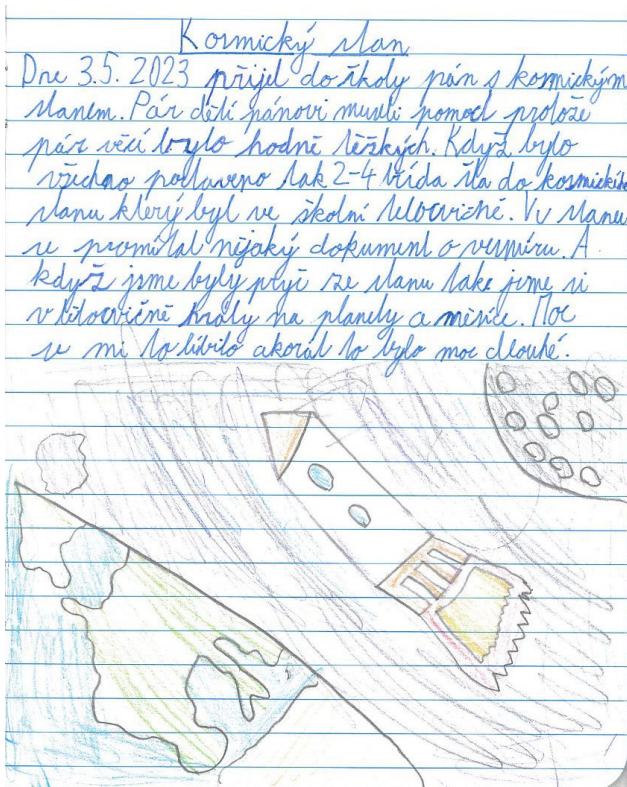 Kosmický stan
Dne 3.5. 2023 přijel do školy pán s kosmickým
stanem. Pár dětí pánovi museli pomoct protože
pár věcí bylo hodně těžkých. Když bylo
všechno postaveno tak 2-4 třída šla do kosmického
stanu který byl ve školní tělocvičně. Vv stanu
se promítal nějaký dokument o vesmíru. A
když jsme byly pryč ze stanu take jsme si
v tělocvičně hrály na planety a měsíce. Moc
se mi to líbilo akorát to bylo moc dlouhé.